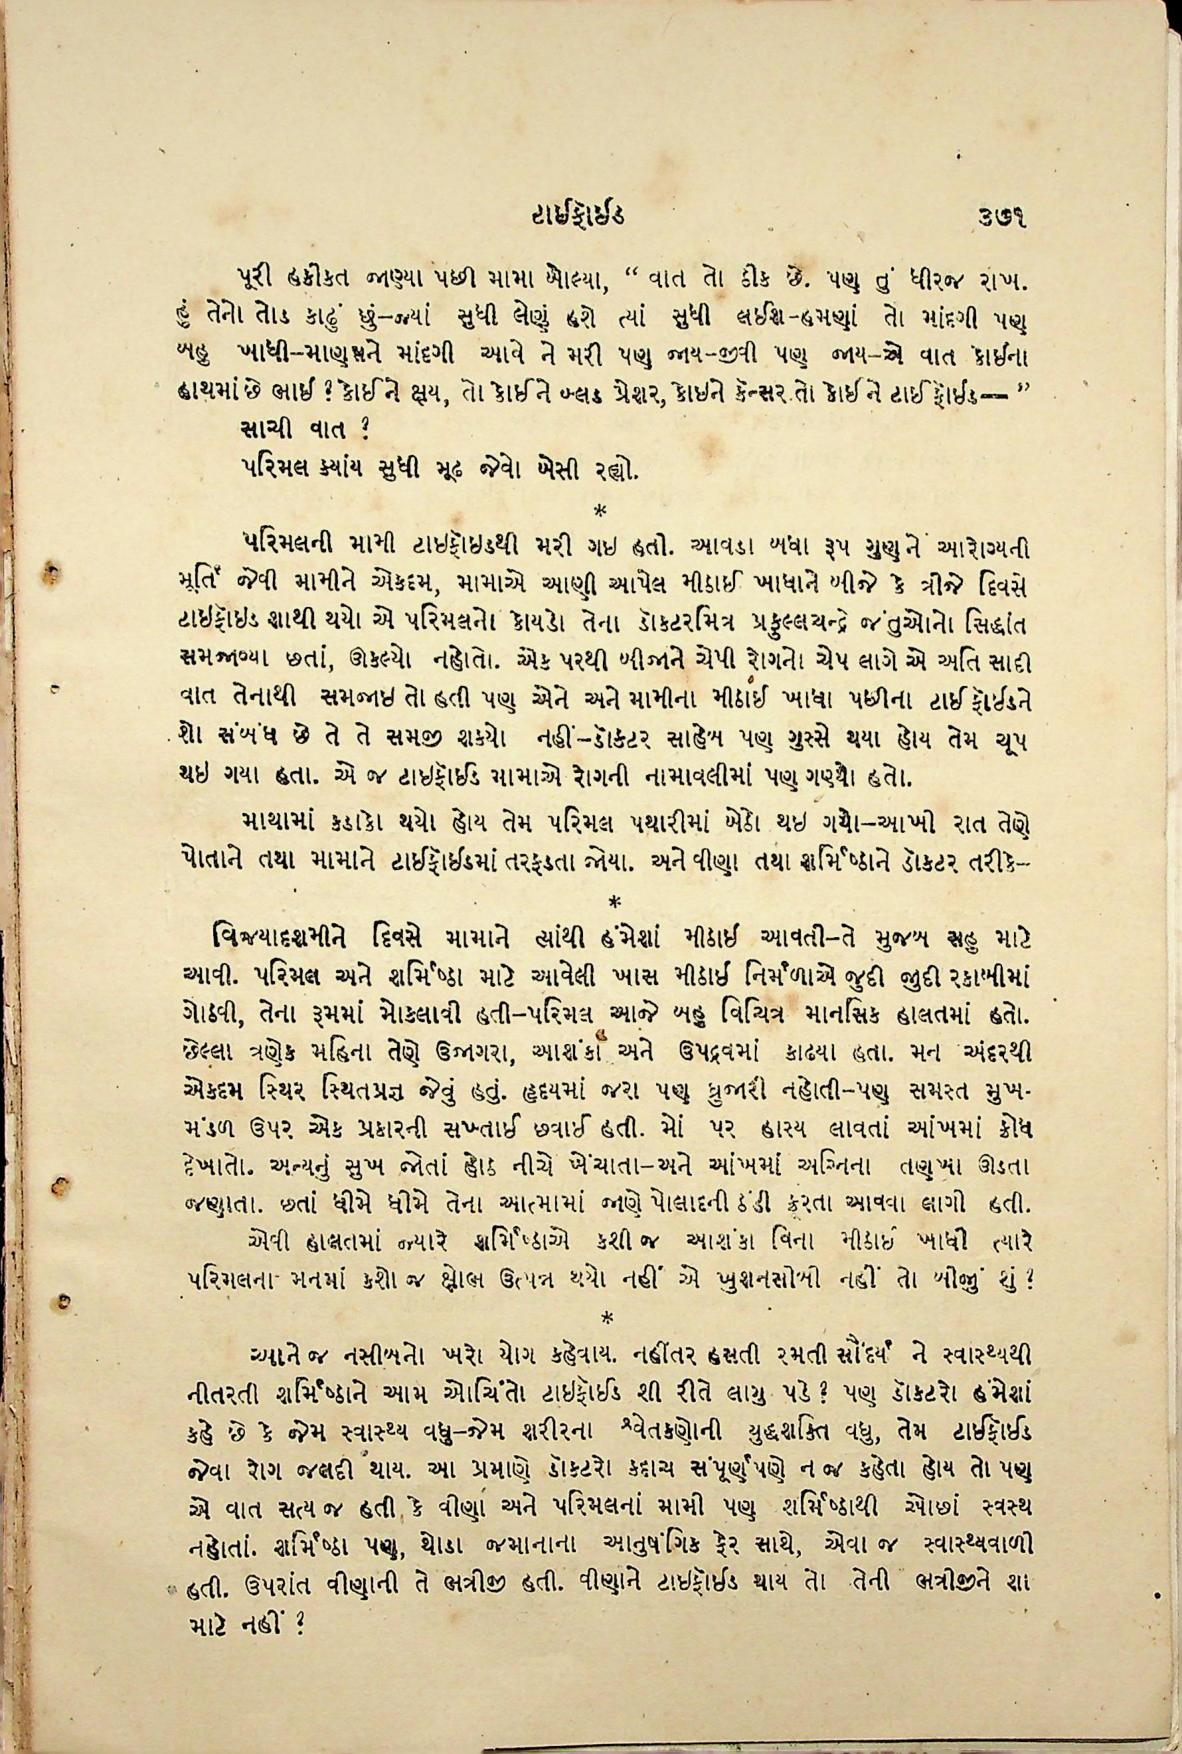 ટાઈફૉઈડ ૩૭૧
પૂરી હકીકત જાણ્યા પછી મામા બોલ્યા, “ વાત તો ઠીક છે. પણ તું ધીરજ રાખ.
હું તેનો તોડ કાઢું છું–જ્યાં સુધી લેણું હશે ત્યાં સુધી લઈશ–હમણાં તો માંદગી પણ
બહુ ખાધી–માણસને માંદગી આવે ને મરી પણ જાય–જીવી પણ જાય–એ વાત કોઈના
હાથમાં છે ભાઈ ? કોઈને ક્ષય, તો કોઈને બ્લડ પ્રેશર, કોઇને કૅન્સર તો કોઈને ટાઈફૉઈડ— ”
સાચી વાત ?
પરિમલ ક્યાંય સુધી મૂઢ જેવો બેસી રહ્યો.
*
પરિમલની મામી ટાઇફૉઇડથી મરી ગઇ હતી. આવડા બધા રૂપ ગુણ ને આરોગ્યની
મૂર્તિ જેવી મામીને એકદમ, મામાએ આણી આપેલ મીઠાઈ ખાધાને બીજે કે ત્રીજે દિવસે
ટાઇફૉઇડ શાથી થયો એ પરિમલનો કોયડો તેના ડૉક્ટરમિત્ર પ્રફુલ્લચન્દ્રે જંતુઓનો સિદ્ધાંત
સમજાવ્યા છતાં, ઊકલ્યો નહોતો. એક પરથી બીજાને ચેપી રોગનો ચેપ લાગે એ અતિ સાદી
વાત તેનાથી સમજાઇ તો હતી પણ એને અને મામીના મીઠાઈ ખાધા પછીના ટાઈફૉઈડને
શો સંબંધ છે તે તે સમજી શક્યો નહીં–ડૉક્ટર સાહેબ પણ ગુસ્સે થયા હોય તેમ ચૂપ
થઇ ગયા હતા. એ જ ટાઇફૉઈડ મામાએ રોગની નામાવલીમાં પણ ગણ્યો હતો.
માથામાં કડાકો થયો હોય તેમ પરિમલ પથારીમાં બેઠો થઇ ગયો–આખી રાત તેણે
પોતાને તથા મામાને ટાઈફૉઈડમાં તરફડતા જોયા. અને વીણા તથા શર્મિષ્ઠાને ડૉક્ટર તરીકે–
*
વિજયાદશમીને દિવસે મામાને ત્યાંથી હંમેશાં મીઠાઇ આવતી–તે મુજબ સહુ માટે
આવી. પરિમલ અને શર્મિષ્ઠા માટે આવેલી ખાસ મીઠાઈ નિર્મળાએ જુદી જુદી રકાબીમાં
ગોઠવી, તેના રૂમમાં મોકલાવી હતી–પરિમલ આજે બહુ વિચિત્ર માનસિક હાલતમાં હતો.
છેલ્લા ત્રણેક મહિના તેણે ઉજાગરા, આશંકા અને ઉપદ્રવમાં કાઢયા હતા. મન અંદરથી
એકદમ સ્થિર સ્થિતપ્રજ્ઞ જેવું હતું. હૃદયમાં જરા પણ ધ્રુજારી નહોતી–પણ સમસ્ત મુખ-
મંડળ ઉપર એક પ્રકારની સખ્તાઈ છવાઈ હતી. મોં પર હાસ્ય લાવતાં આંખમાં ક્રોધ
દેખાતો. અન્યનું સુખ જોતાં હોઠ નીચે ખેંચાતા–અને આંખમાં અગ્નિના તણખા ઊડતા
જણાતા. છતાં ધીમે ધીમે તેના આત્મામાં જાણે પોલાદની ઠંડી ક્રૂરતા આવવા લાગી હતી.
એવી હાલતમાં જ્યારે શર્મિષ્ઠાએ કશી જ આશંકા વિના મીઠાઈ ખાધી ત્યારે
પરિમલના મનમાં કશો જ ક્ષોભ ઉત્પન્ન થયો નહીં એ ખુશનસીબી નહીં તો બીજું શું ?
*
આને જ નસીબનો ખરો યોગ કહેવાય. નહીંતર હસતી રમતી સૌંદર્ય ને સ્વાસ્થ્યથી
નીતરતી શર્મિષ્ઠાને આમ ઓચિંતો ટાઇફૉઈડ શી રીતે લાગુ પડે ? પણ ડૉક્ટરો હંમેશાં
કહે છે કે જેમ સ્વાસ્થ્ય વધુ–જેમ શરીરના શ્વેતકણોની યુદ્ધશક્તિ વધુ, તેમ ટાઈફૉઈડ
જેવા રોગ જલદી થાય. આ પ્રમાણે ડૉક્ટરો કદાચ સંપૂર્ણપણે ન જ કહેતા હોય તો પણ
એ વાત સત્ય જ હતી કે વીણા અને પરિમલનાં મામી પણ શર્મિષ્ઠાથી ઓછાં સ્વસ્થ
નહોતાં. શર્મિષ્ઠા પણ, થોડા જમાનાના આનુષંગિક ફેર સાથે, એવા જ સ્વાસ્થ્યવાળી
હતી. ઉપરાંત વીણાની તે ભત્રીજી હતી. વીણાને ટાઇફૉઈડ થાય તો તેની ભત્રીજીને શા
માટે નહીં ?